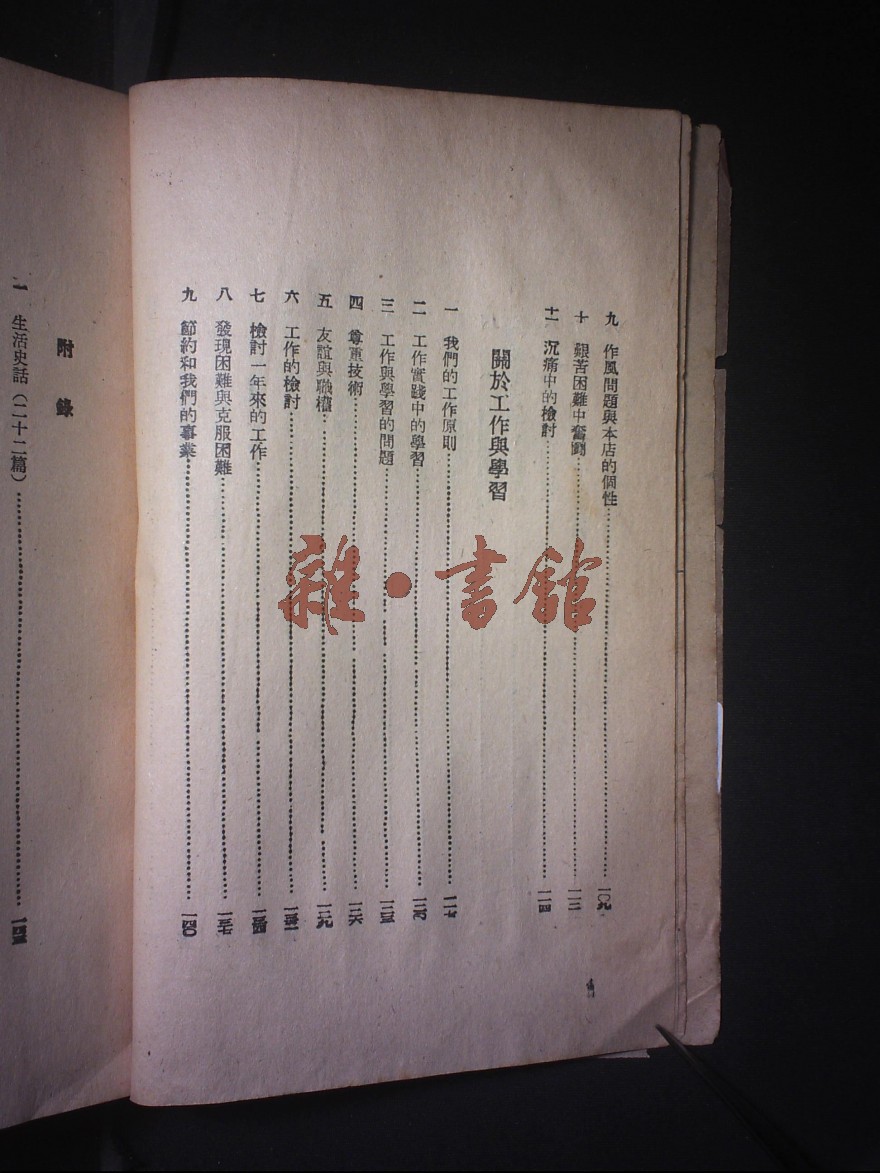 九　作風問題與本店的個性……一〇九
十　艱苦困難中奮鬭……一一二
十一　沉痛中的檢討……一一四
關於工作與學習
一　我們的工作原則……一一七
二　工作實踐中的學習……一二〇
三　工作與學習的問題……一二三
四　尊重技術……一二六
五　友誼與職權……一二九
六　工作的檢討……一三二
七　檢討一年來的工作……一三四
八　發現困難與克服困難……一三七
九　節約和我們的事業……一四〇
附錄
一　生活史話（二十二篇）……一四三
雜·書館